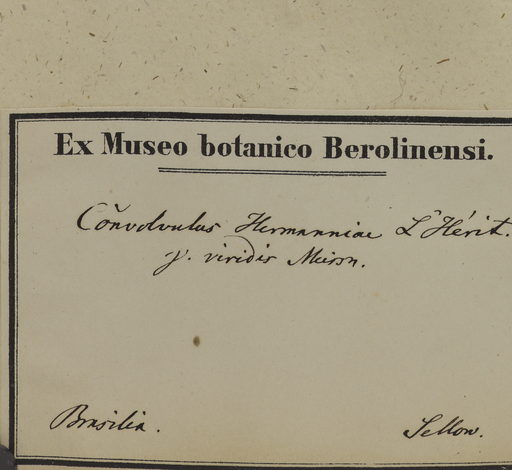 Ex Museo botanico Berolinensi.
Coñvolvulus Hermanniae L'Hérit.
γ. viridis Meissn.
Brasilia. Sellow.